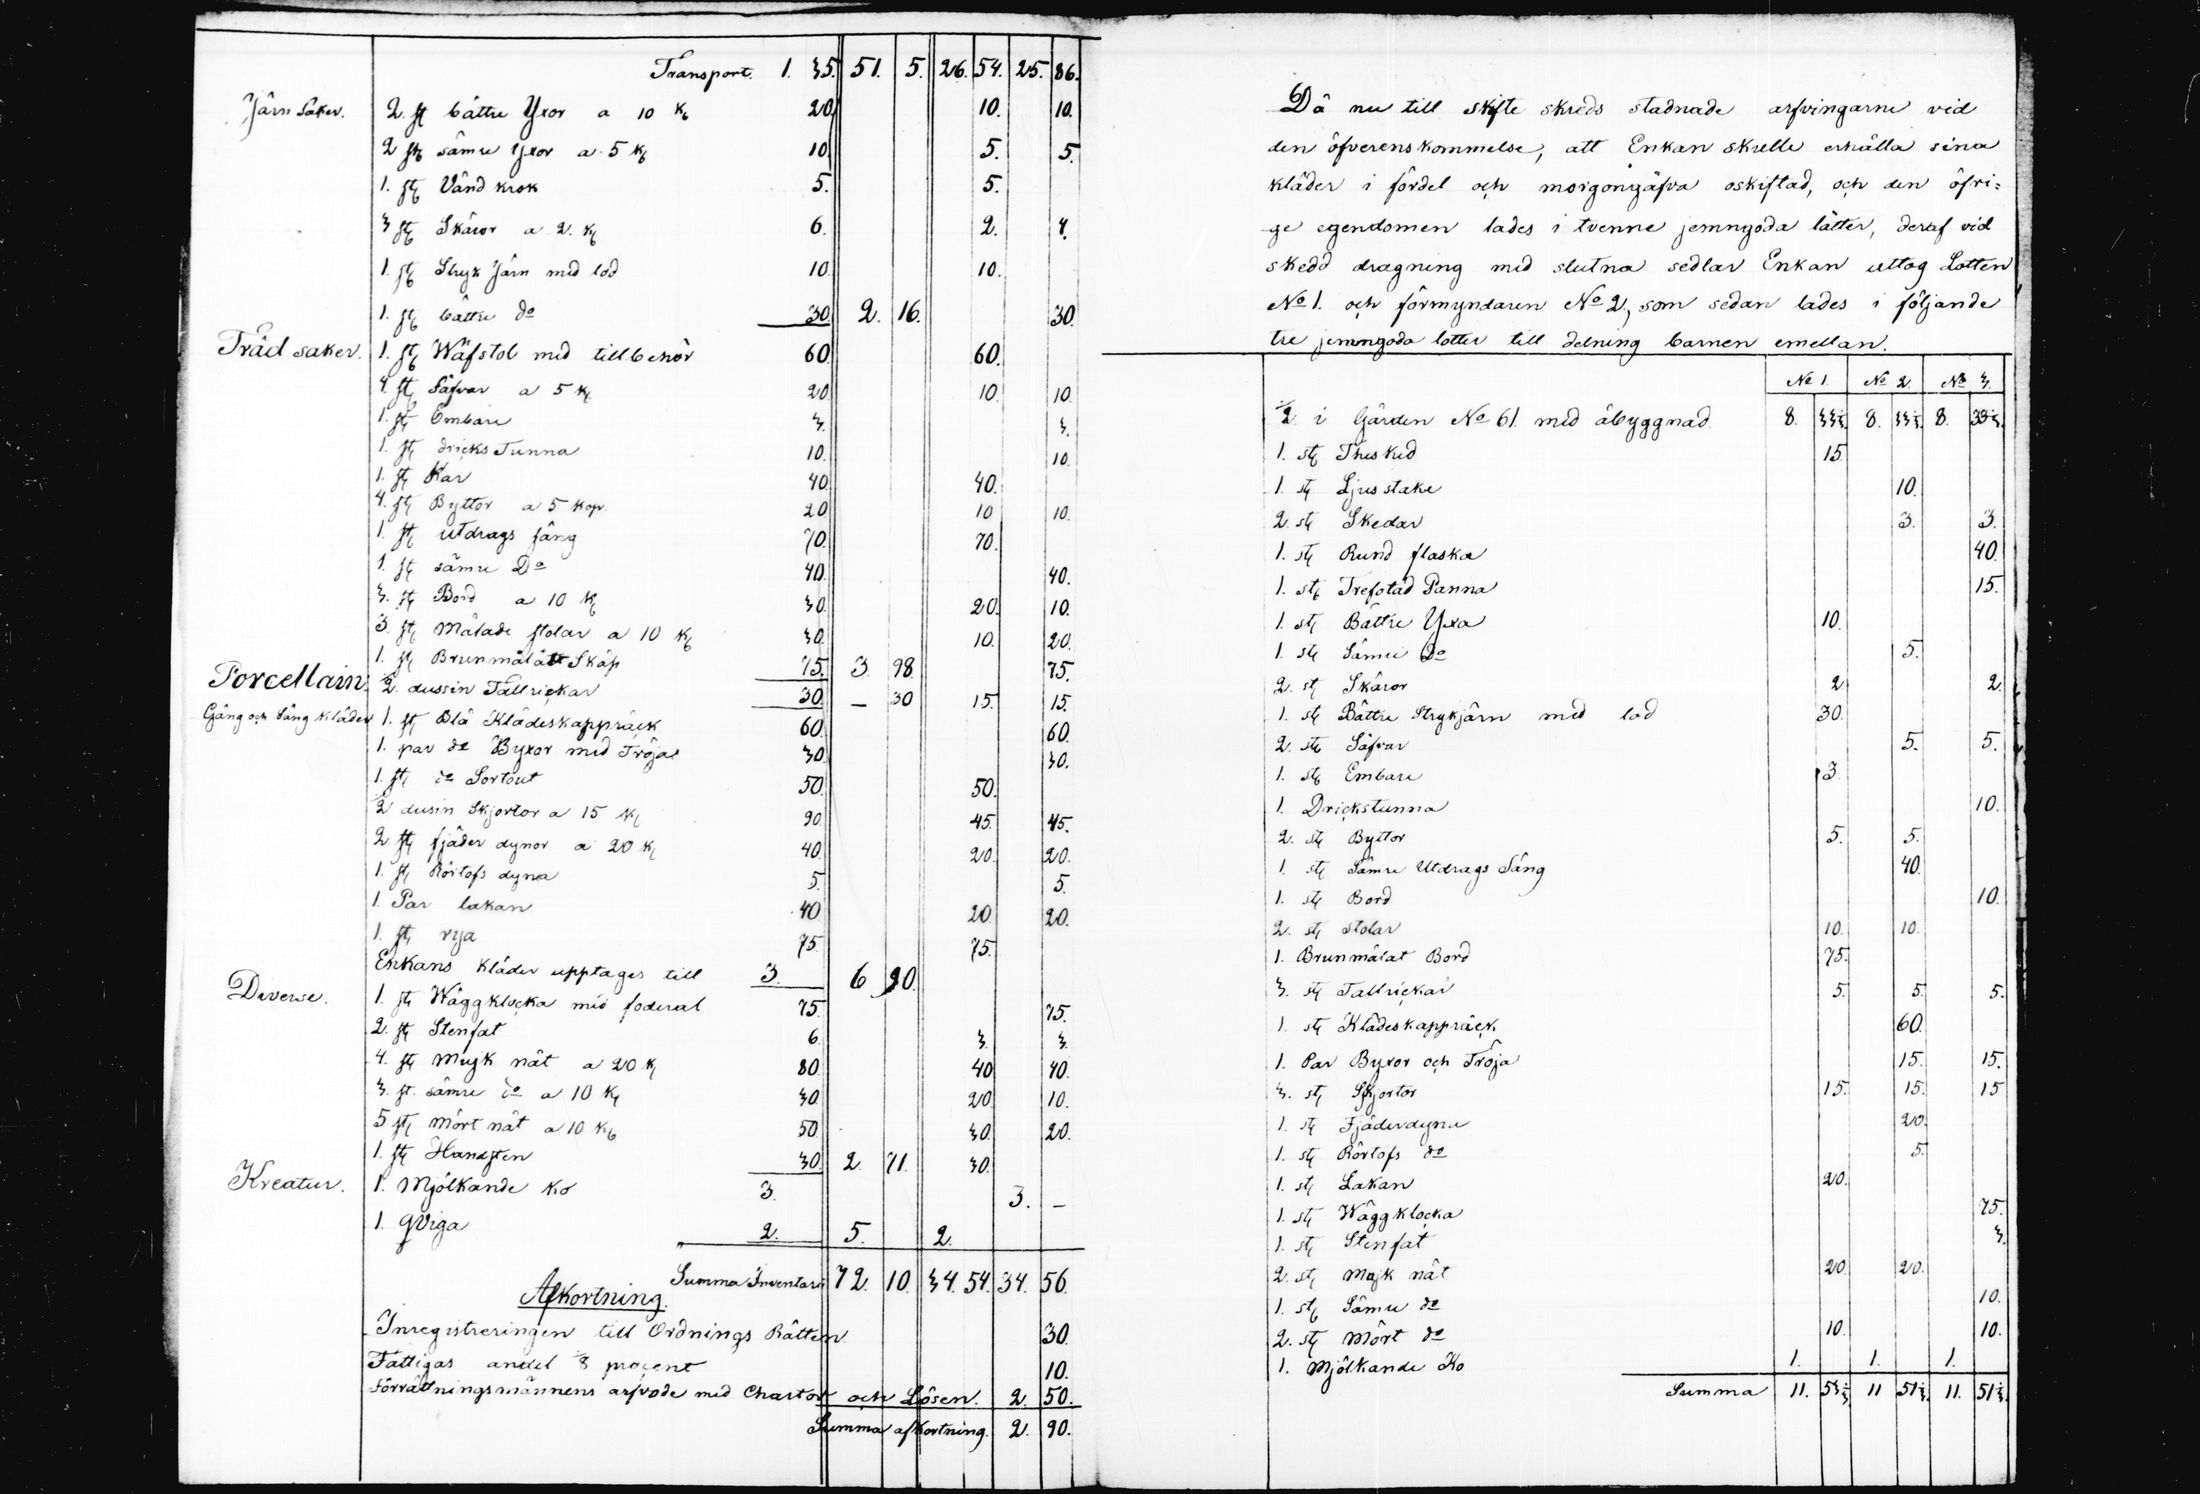 Transport. 1. 35. 51. 5. 26. 54. 25. 86.
Järn Saker. 2 st bättre Yxor a 10 K 20. 10. 10.
2 st sämre Yxor a 5 K 10. 5. 5.
1. st Vänd krok 5. 5.
3 st Skäror a 2. K 6. 2. 4.
1. st Stryk Järn med lod 10. 10.
1. st bättre do 30. 2. 16. 30.
Träd saker. 1. st Wäfstol med tillbehör 60. 60.
4. st Såfvar a 5 K 20. 10. 10.
1. st Embare 3. 3.
1. st dricks Tunna 10. 10.
1. st Kar 40. 40.
4. st Byttor a 5 kop 20 10 10.
1. st utdrags säng 70. 70.
1. st sämre Do 40. 40.
3. st Bord a 10 K 30. 20. 10.
3. st Målade stolar a 10 K 30. 10. 20.
1. st Brunmålatt Skåp 75. 3. 98. 75.
Porcellain. ½ dussin Tallrickar 30. — 30 15. 15.
Gång och Säng Kläder 1. st Blå Klädeskappräck 60. 60.
1. par do Byxor med Tröja 30. 30.
1. st do Sortout 50. 50.
½ dusin Skjortor a 15 K 90 45. 45.
2 st fjäder dynor a 20 K 40. 20. 20.
1. st Rörtofs dyna 5. 5.
1. Par lakan 40 20. 20.
1. st rya 75. 75.
Enkans kläder upptages till 3. 6 90.
Diverse. 1. st Wäggklocka med foderal 75. 75.
2. st Stenfat 6. 3. 3.
4. st Mujk nät a 20 K 80 40 40.
3. st. sämre do a 10 K 30 20 10.
5 st mört nät a 10 K 50 30. 20.
1. st Handsten 30. 2. 71. 30.
Kreatur. 1. Mjölkande ko 3. 3. —
1. qviga 2. 5. 2.
Summa Inventari 72. 10. 34. 54. 34. 56.
Afkortning.
Inregistreringen till Ordnings Rätten 30.
Fattigas andel ⅛ procent 10.
Förrättningsmännens arfvode med Chartor och Lösen. 2. 50.
Summa afkortning. 2. 90.
Då nu till skifte skreds stadnade arfvingarne vid
den öfverenskommelse, att Enkan skulle erhålla sina
kläder i fördel och morgongåfva oskiftad, och den öfri=
ge egendomen lades i tvenne jemngoda låtter, deraf vid
skedd dragning med slutna sedlar Enkan uttog Lotten
No 1. och förmyndaren No 2, som sedan lades i följande
tre jemngoda lotter till delning barnen emellan.
No 1. No 2. No 3.
½ i Gården No 61 med åbyggnad 8. 33⅓. 8. 33⅓. 8. 33⅓.
1. st Theskid 15.
1. st Ljusstake 10.
2. st Skedar 3. 3.
1. st Rund flaska 40.
1. st Trefotad Panna 15.
1. st Bättre Yxa 10.
1. st Sämre Do 5.
2. st Skäror 2 2.
1. st Bättre Strykjärn med lod 30.
2. st Såfvar 5. 5.
1. st Embare 3.
1. Drickstunna 10.
2. st Byttor 5. 5.
1. st Sämre Utdrags Säng 40.
1. st Bord 10.
2. st stolar 10. 10.
1. Brunmålat Bord 75.
3. st Tallrickar 5. 5. 5.
1. st Klädeskappräck 60.
1. Par Byxor och Tröja 15. 15.
3. st Skjortor 15. 15. 15
1. st Fjäderdyna 20.
1. st Rörtofs do 5.
1. st Lakan 20.
1. st Wäggklocka 75.
1. st Stenfat 3.
2. st Mujk nät 20. 20.
1. st Sämre do 10.
2. st Mört do 10. 10.
1. Mjölkande Ko 1. 1. 1.
Summa 11. 51⅓ 11 51⅓. 11. 51⅓.